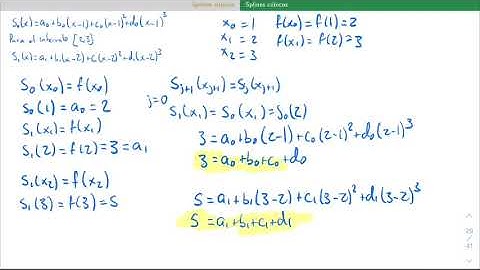 Splines cúbicos
Splines cúbicos
S₀(x)=a₀+b₀(x-1)+c₀(x-1)²+d₀(x-1)³
Para el intervalo [2,3]
S₁(x)=a₁+b₁(x-2)+c₁(x-2)²+d₁(x-2)³
x₀ = 1
x₁ = 2
x₂ = 3
f(x₀)=f(1)=2
f(x₁)=f(2)=3
S₀(x₀)=f(x₀)
S₀(1)=a₀=2
S₁(x₁)=f(x₁)
S₁(2)=f(2)=3=a₁
S₁(x₂)=f(x₂)
S₁(3)=f(3)=5
Sⱼ₊₁(xⱼ₊₁)=Sⱼ(xⱼ₊₁)
j=0
S₁(x₁)=S₀(x₁)=S₀(2)
3=a₀+b₀(2-1)+c₀(2-1)²+d₀(2-1)³
3=a₀+b₀+c₀+d₀
5=a₁+b₁(3-2)+c₁(3-2)²+d₁(3-2)³
5=a₁+b₁+c₁+d₁
29
/
41